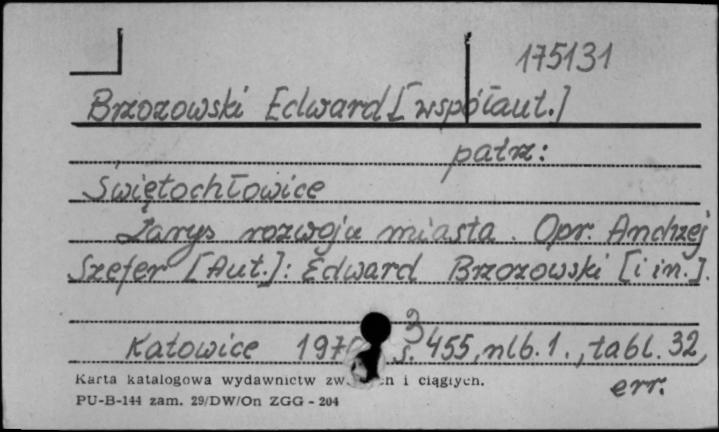 175131
Brzozowski Edward [współaut.]
patrz:
Świętochłowice
Zarys rozwoju miasta. Opr. Andrzej
Szefer [Aut.]: Edward Brzozowski [i in.].
Katowice 1970 s. 455, nlb. 1., tabl. 32,
3
err.
Karta katalogowa wydawnictw i ciągłych.
PU-B-144 zam. 29/DW/On ZGG - 204